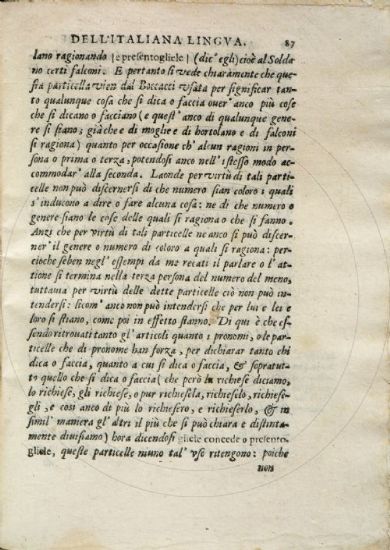 DELL'ITALIANA LINGVA. 87
lano ragionando (e presentogliele) (dic' egli) cioè al Solda
no certi falconi. E pertanto si vede chiaramente che que-
sta particella vien dal Boccacci vsata per significar tan-
to qualunque cosa che si dica o faccia ouer' anco più cose
che si dicano o facciano (e quest' anco di qualunque gene-
re si siano; già che e di moglie e di hortolano e di falconi
si ragiona) quanto per occasione ch' alcun ragioni in per-
sona o prima o terza; potendosi anco nell' istesso modo ac-
commodar' alla seconda. Laonde per virtù di tali parti-
celle non può discernersi di che numero sian coloro i quali
s'inducono a dire o fare alcuna cosa: ne di che numero o
genere siano le cose delle quali si ragiona o che si fanno.
Anzi che per virtù di tali particelle ne anco si può discer-
ner' il genere o numero di coloro a quali si ragiona: per-
cioche seben negl' essempi da me recati il parlare o l'at-
tione si termina nella terza persona del numero del meno,
tuttauia per virtù delle dette particelle ciò non può in-
tendersi: sicom' anco non può intendersi che per lui e lei e
loro si stiano, come poi in effetto stanno. Di qui è che es-
sendo ritrouati tanto gl' articoli quanto i pronomi, o le par
ticelle che di pronome han forza, per dichiarar tanto chi
dica o faccia, quanto a cui si dica o faccia, & sopratut-
to quello che si dica o faccia (che però lu richiese diciamo,
lo richiese, gli richiese, o pur richiesela, richieselo, richiese-
gli; e così anco di più lo richiesero, e richieserlo, & in
simil' maniera gl' altri il più che si può chiara e distinta-
mente diuisiamo) hora dicendosi gliele concede o presento-
gliele, queste particelle niuno tal' vso ritengono: poiche
non